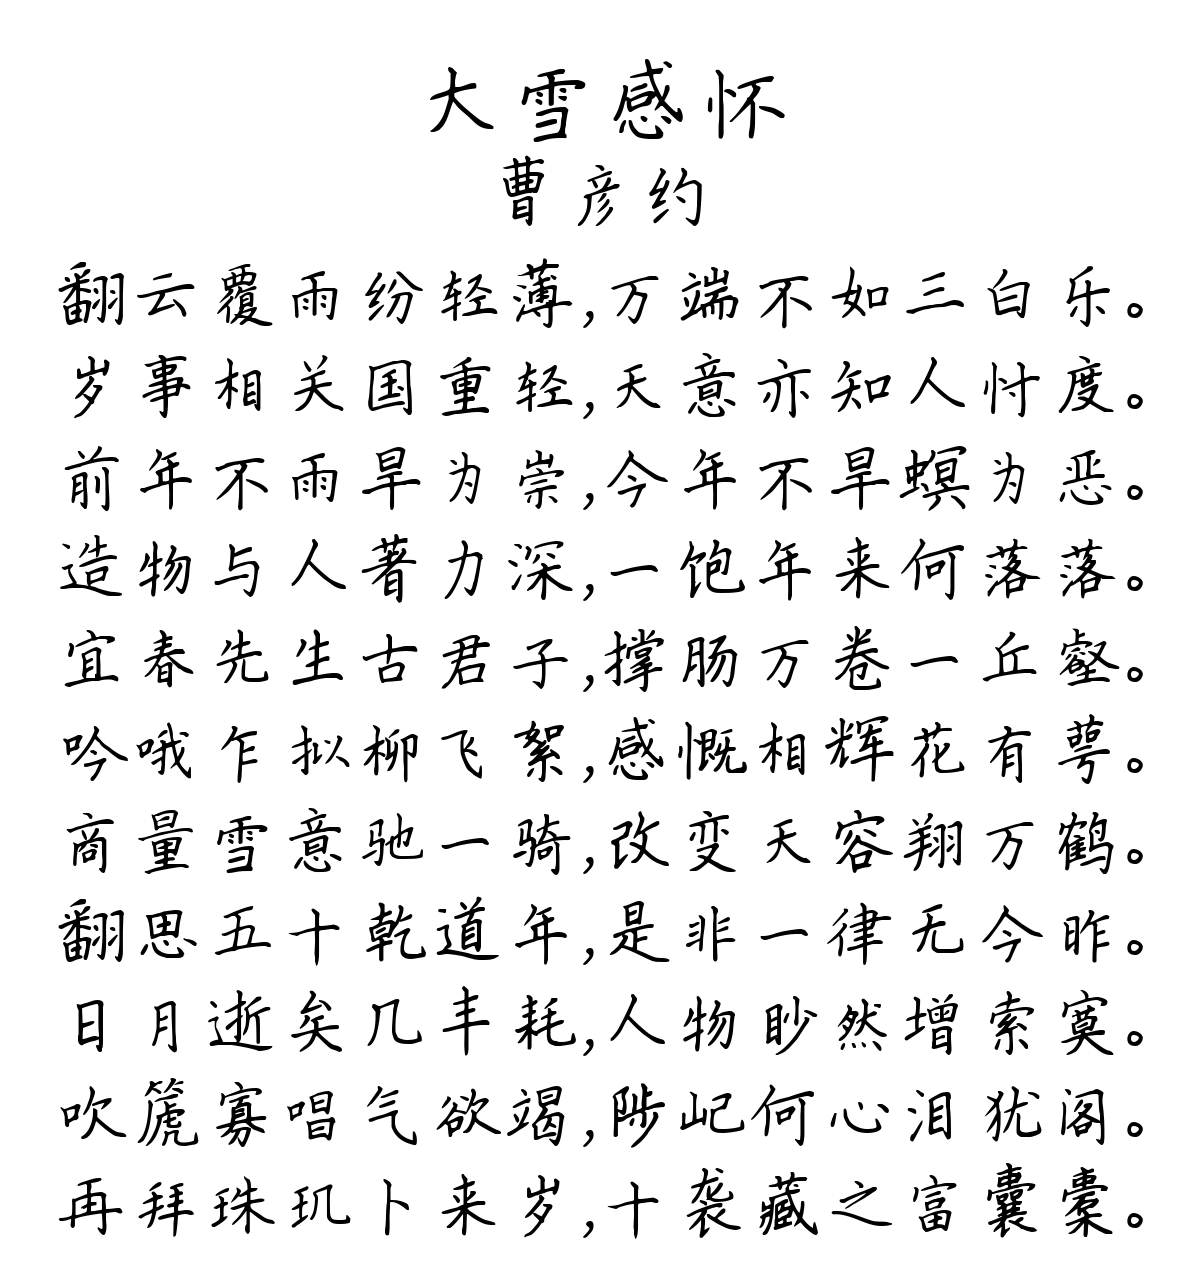 大雪感怀
曹彦约
翻云覆雨纷轻薄,万端不如三白乐。
岁事相关国重轻,天意亦知人忖度。
前年不雨旱为崇,今年不旱螟为恶。
造物与人著力深,一饱年来何落落。
宜春先生古君子,撑肠万卷一丘壑。
吟哦乍拟柳飞絮,感慨相辉花有萼。
商量雪意驰一骑,改变天容翔万鹤。
翻思五十乾道年,是非一律无今昨。
日月逝矣几丰耗,人物眇然增索寞。
吹篪寡唱气欲竭,陟屺何心泪犹阁。
再拜珠玑卜来岁,十袭藏之富囊橐。